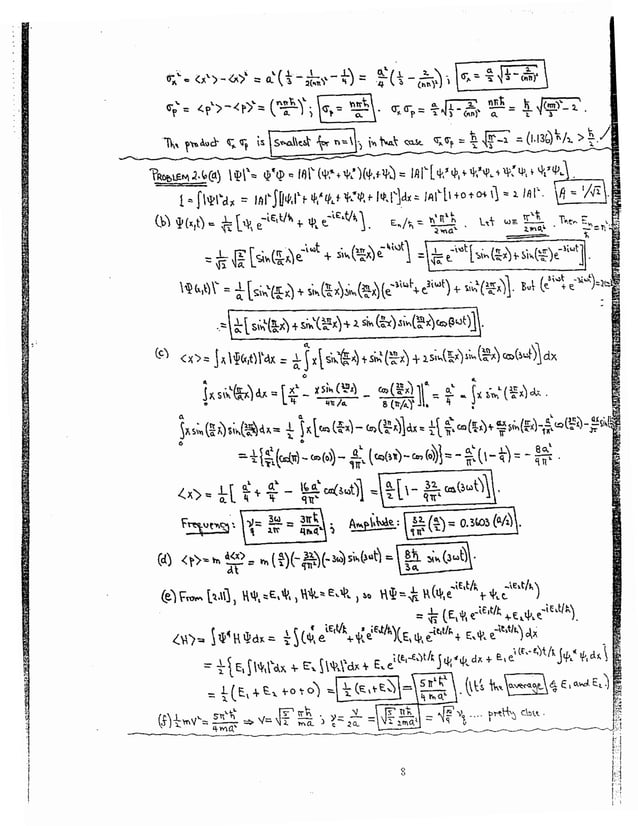 σₓ² = <x²> - <x>² = a²(1/3 - 1/2(nπ)² - 1/4) = a²/4 (1/3 - 2/(nπ)²) ; σₓ = a/2 √(1/3 - 2/(nπ)²)
σₚ² = <p²> - <p>² = (nπħ/a)² ; σₚ = nπħ/a . σₓσₚ = a/2 √(1/3 - 2/(nπ)²) nπħ/a = ħ/2 √((nπ)²/3 - 2 .
The product σₓσₚ is smallest for n=1 ; in that case σₓσₚ = ħ/2 √(π²/3 - 2) = (1.136) ħ/2 > ħ/2 .
PROBLEM 2.6 (a) |Ψ|² = Ψ*Ψ = |A|² (ψ₁* + ψ₂*)(ψ₁ + ψ₂) = |A|² [ψ₁*ψ₁ + ψ₁*ψ₂ + ψ₂*ψ₁ + ψ₂*ψ₂]
1 = ∫|Ψ|²dx = |A|² ∫[|ψ₁|² + ψ₁*ψ₂ + ψ₂*ψ₁ + |ψ₂|²]dx = |A|² [1+0+0+1] = 2|A|² . A = 1/√2
(b) Ψ(x,t) = 1/√2 [ψ₁ e^(-iE₁t/ħ) + ψ₂ e^(-iE₂t/ħ)] . Eₙ/ħ = n²π²ħ/2ma² . Let ω ≡ π²ħ/2ma² . Then Eₙ/ħ = n²
= 1/√2 √(2/a) [sin(π/a x) e^(-iωt) + sin(2π/a x) e^(-4iωt)] = 1/√a e^(-iωt) [sin(π/a x) + sin(2π/a x) e^(-3iωt)] .
|Ψ(x,t)|² = 1/a [sin²(π/a x) + sin(π/a x) sin(2π/a x)(e^(-3iωt) + e^(3iωt)) + sin²(2π/a x)] . But (e^(3iωt) + e^(-3iωt)) = 2cos
= 1/a [sin²(π/a x) + sin²(2π/a x) + 2 sin(π/a x) sin(2π/a x) cos(3ωt)] .
(c) <x> = ∫x|Ψ(x,t)|²dx = 1/a ∫₀ᵃ x [sin²(π/a x) + sin²(2π/a x) + 2 sin(π/a x) sin(2π/a x) cos(3ωt)] dx
∫₀ᵃ x sin²(π/a x) dx = [x²/4 - x sin(2π/a x)/4π/a - cos(2π/a x)/8(π/a)²]|₀ᵃ = a²/4 = ∫₀ᵃ x sin²(2π/a x) dx .
∫₀ᵃ x sin(π/a x) sin(2π/a x) dx = 1/2 ∫₀ᵃ x [cos(π/a x) - cos(3π/a x)]dx = 1/2 {a²/π² cos(π/a x) + ax/π sin(π/a x) - a²/9π² cos(3π/a x) - ax/3π sin
= 1/2 {a²/π² (cos(π) - cos(0)) - a²/9π² (cos(3π) - cos(0))} = - a²/π² (1 - 1/9) = - 8a²/9π² .
<x> = 1/a [a²/4 + a²/4 - 16a²/9π² cos(3ωt)] = a/2 [1 - 32/9π² cos(3ωt)] .
Frequency: ν = 3ω/2π = 3πħ/4ma² ; Amplitude: 32/9π² (a/2) = 0.3603 (a/2) .
(d) <p> = m d<x>/dt = m (a/2)(-32/9π²)(-3ω) sin(3ωt) = 8ħ/3a sin(3ωt) .
(e) From [2.11], Hψ₁ = E₁ψ₁, Hψ₂ = E₂ψ₂, so HΨ = 1/√2 H(ψ₁e^(-iE₁t/ħ) + ψ₂e^(-iE₂t/ħ))
= 1/√2 (E₁ψ₁e^(-iE₁t/ħ) + E₂ψ₂e^(-iE₂t/ħ) .
<H> = ∫Ψ*HΨdx = 1/2 ∫(ψ₁*e^(iE₁t/ħ) + ψ₂*e^(iE₂t/ħ))(E₁ψ₁e^(-iE₁t/ħ) + E₂ψ₂e^(-iE₂t/ħ)) dx
= 1/2 {E₁∫|ψ₁|²dx + E₂∫|ψ₂|²dx + E₂e^(i(E₁-E₂)t/ħ)∫ψ₁*ψ₂dx + E₁e^(i(E₂-E₁)t/ħ)∫ψ₂*ψ₁dx}
= 1/2 (E₁ + E₂ + 0 + 0) = 1/2 (E₁+E₂) = 5π²ħ²/4ma² . (It's the average of E₁ and E₂.)
(f) 1/2 mv² = 5π²ħ²/4ma² ⇒ v = √(5/2) πħ/ma ; ν = v/2a = √(5/2) πħ/2ma² = √(10/9) ν .... pretty close.
8